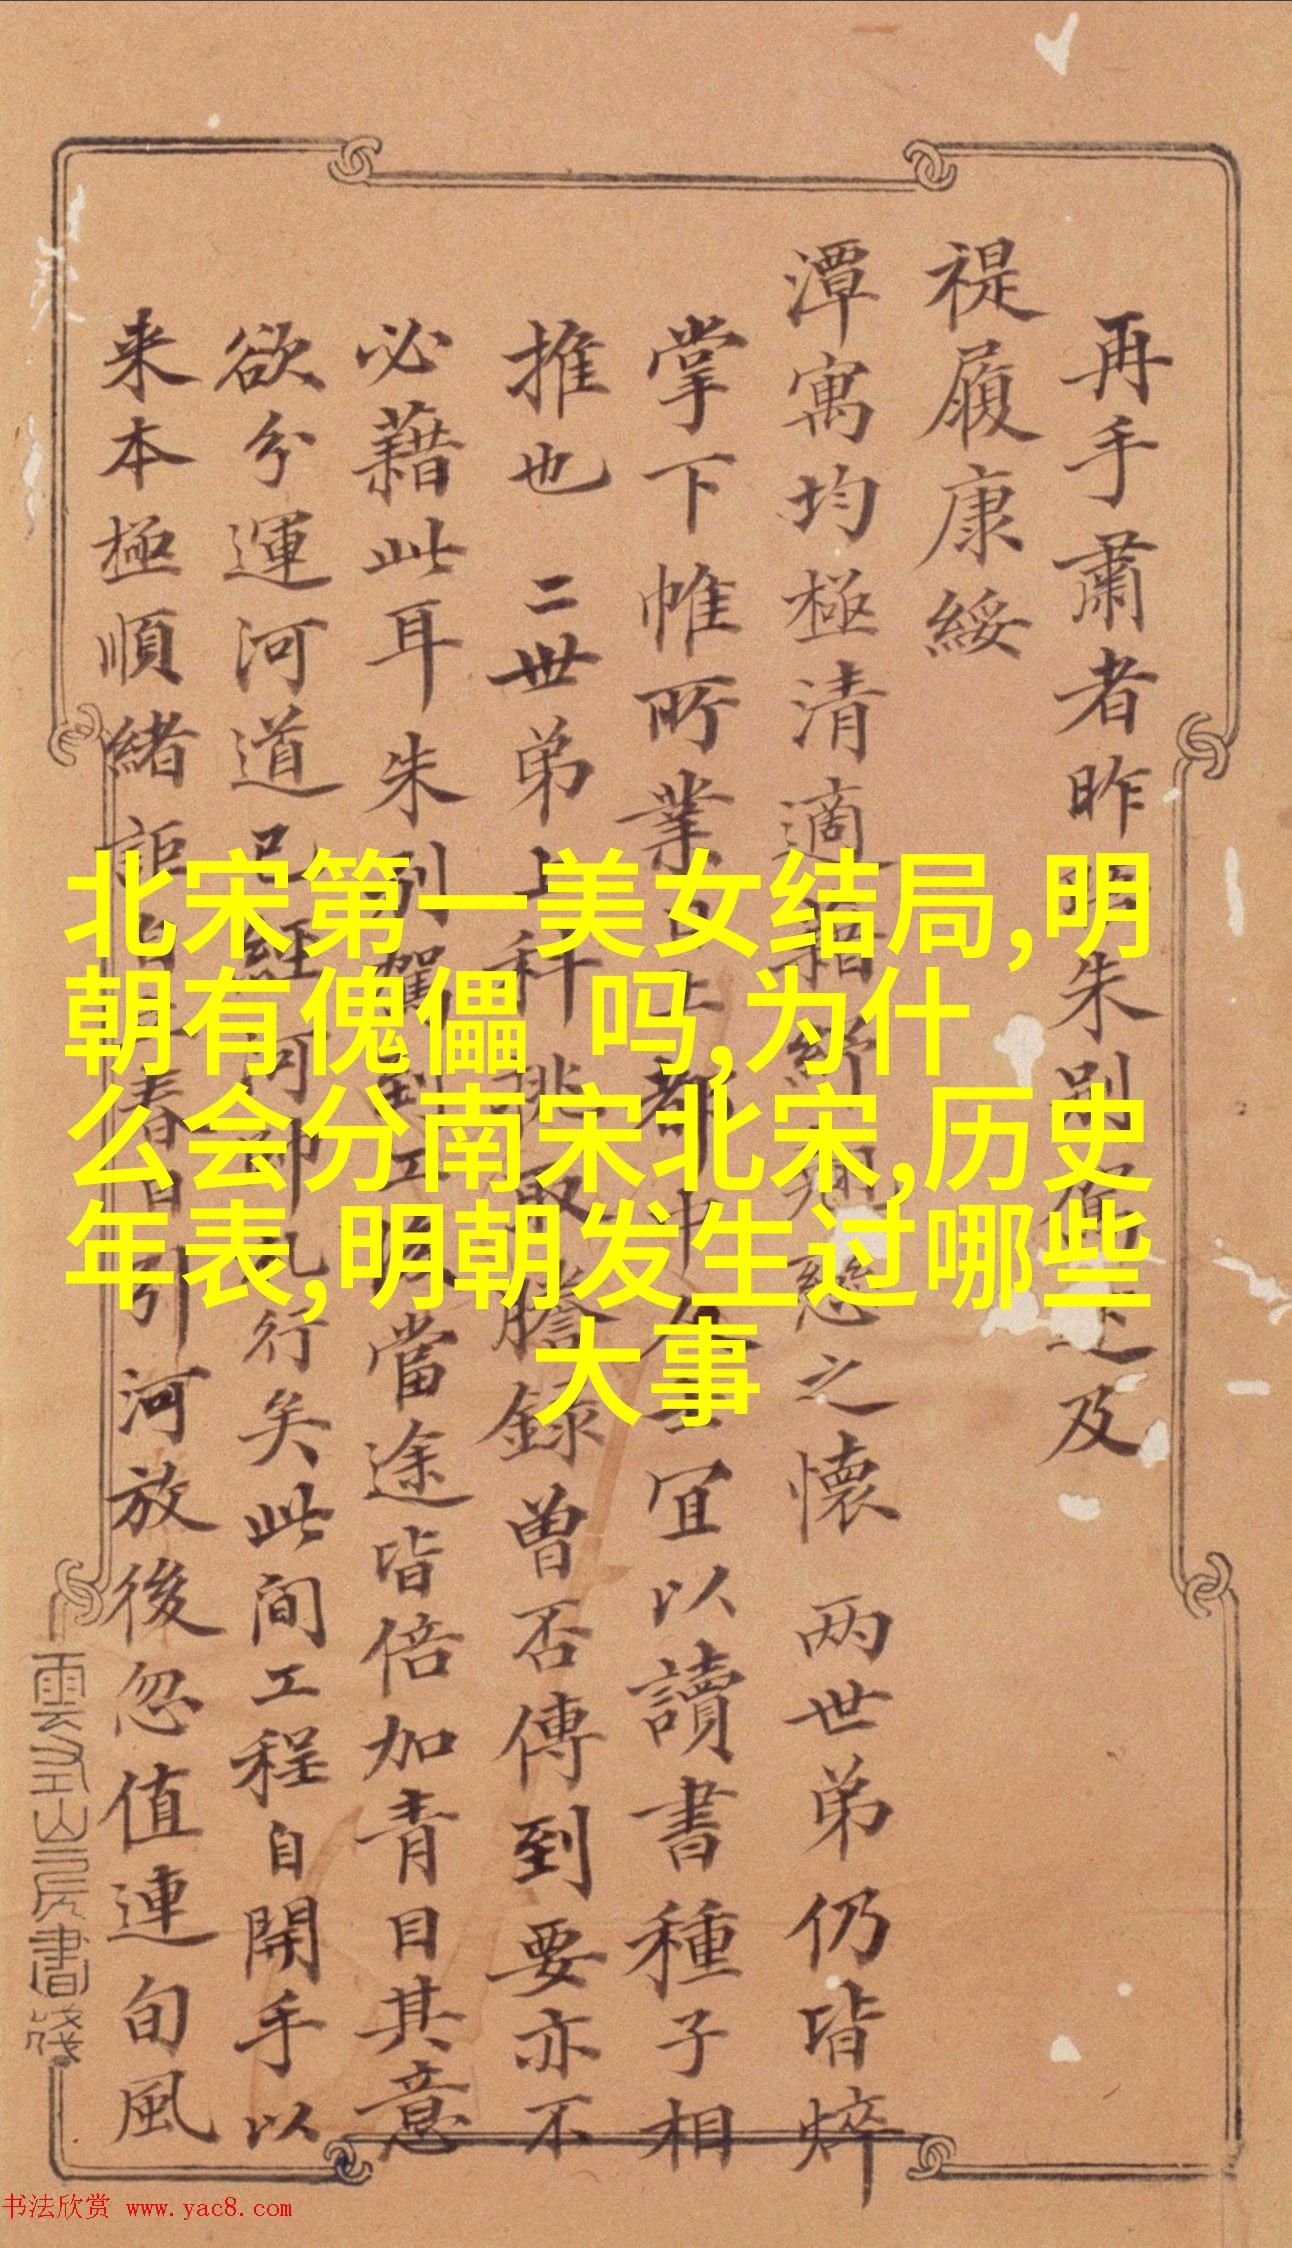 北宋第一美女结局,明
朝有傀儡 吗,为什
么会分南宋北宋,历史
年表,明朝发生过哪些
大事
再手肅者昨朱別及
禔履康綏
潭寓均極清適慈之懷 两世弟仍皆焠
掌下帷所業都中宜以讀書種子相
推也 二世弟上科挑取謄錄曾否傳到要亦不
必藉此耳朱別駕到工當途皆倍加青目其意
欲分運河道已經河帥札行矣此间工程自開手以
来本極順緒詎春引河放後忽值連旬風
雲山房書箋
书法欣赏 www.yac8.com